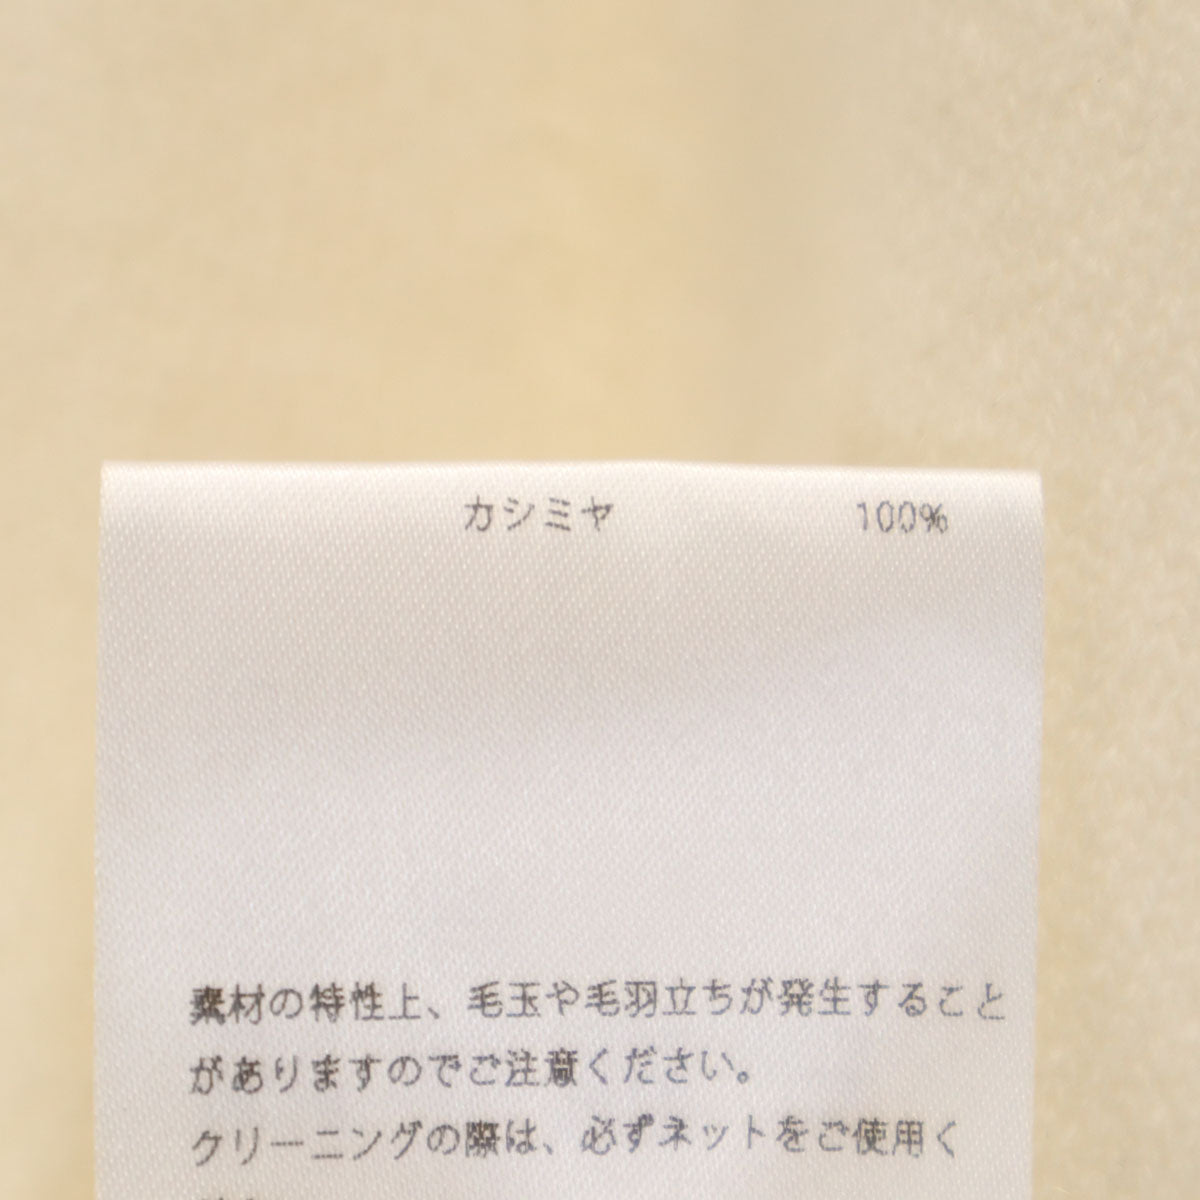 カシミヤ 100%
素材の特性上、毛玉や毛羽立ちが発生すること
がありますのでご注意ください。
クリーニングの際は、必ずネットをご使用く